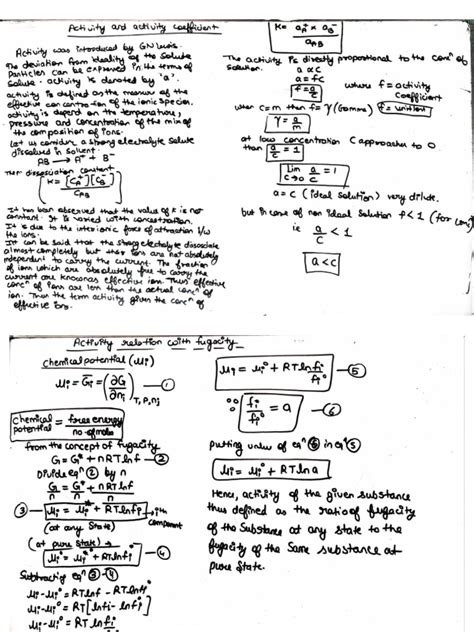 Activity and activity coefficient
Activity was introduced by GN Lewis.
The deviation from ideality of the Solute
Particles can be expressed in the terms of
Solute. activity is denoted by 'a'.
activity is defined as the measure of the
effective concentration of the ionic species.
activity is depend on the temperature,
pressure and concentration of the mix of
the composition of ions.
Let us consider a strong electrolyte Solute
dissolved in Solvent.
AB → A⁺ + B⁻
Their dissociation constant
K = [C_A⁺][C_B⁻] / C_AB
It has been observed that the value of K is not
constant. It is varied with concentration.
It is due to the interionic force of attraction b/w
the ions.
It can be said that the strong electrolyte dissociate
almost completely but their ions are not absolutely
independent to carry the current. The fraction
of ions which are absolutely free to carry the
current are known as effective ion. Thus effective
concⁿ of ions are less than the actual concⁿ of
ion. Then the term activity given the concⁿ of
effective ions.
K = a_A⁺ × a_B⁻ / a_AB
The activity is directly proportional to the concⁿ of
solution.
a ∝ c
a = fc
f = a/c where f = activity
coefficient
when c = m then f = γ (Gamma) f = unitless
γ = a/m
at low concentration C approaches to 0
than a/c = 1
Lim C→0 a/c = 1
a = c (ideal solution) very dilute.
but in case of non ideal solution f < 1 (for conc)
ie a/c < 1
a < c
Activity relation with fugacity
chemical potential (μi)
μi = Ḡi = (∂G/∂ni) T, P, nj — ①
chemical potential = free energy / no. of moles
from the concept of fugacity
G = G° + nRT ln f — ②
Divide eqⁿ ② by n
G/n = G°/n + nRT ln f/n
③ — μi = μi° + RT ln fi → ith
component
(at any State)
(at pure state) →
μi° = μi° + RT ln fi° — ④
Subtracting eqⁿ ③ - ④
μi - μi° = RT ln f - RT ln fi°
μi - μi° = RT [ln fi - ln fi°]
μi - μi° = RT ln fi/fi°
μi = μi° + RT ln fi/fi° — ⑤
∵ fi/fi° = a — ⑥
putting value of eqⁿ ⑥ in eqⁿ ⑤
μi = μi° + RT ln a
Hence, activity of the given substance
thus defined as the ratio of fugacity
of the Substance at any state to the
fugacity of the Same substance at
pure State.